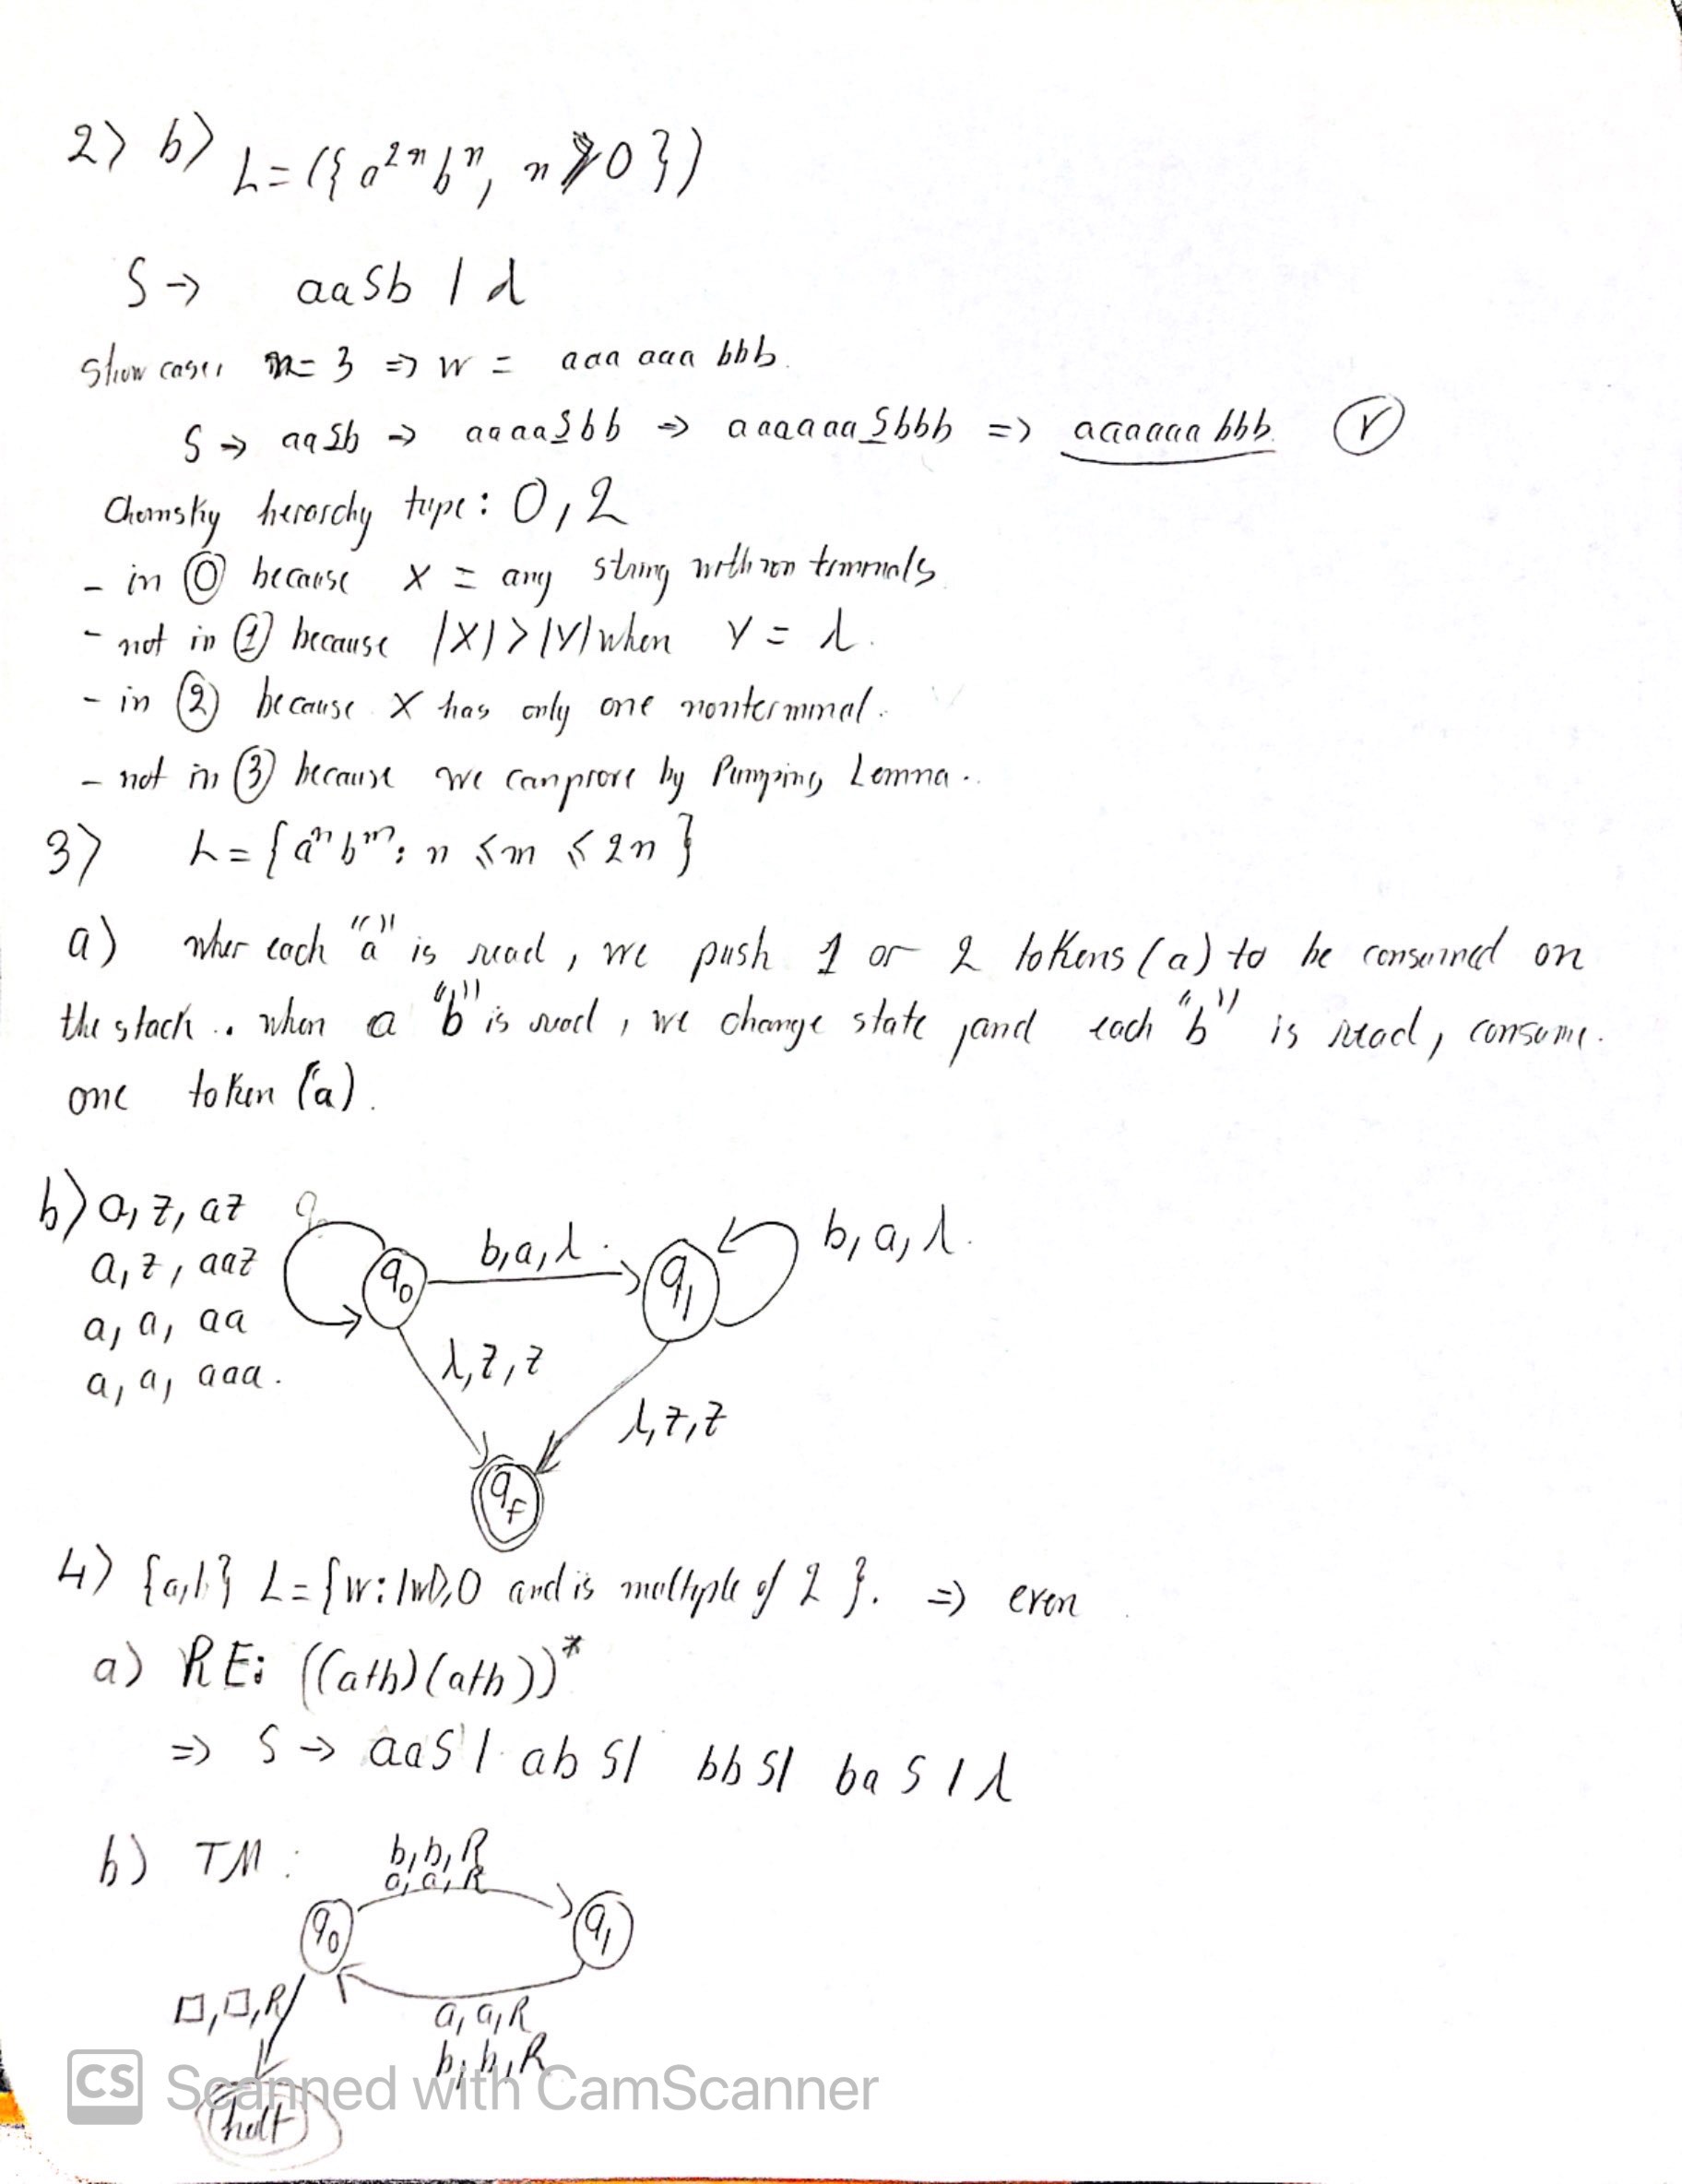 2) b) L = ({ a²ⁿ bⁿ, n ≥ 0 })
S → aaSb | λ
Show case: n = 3 => w = aaa aaa bbb.
S → aaSb → aaaaSbb → aaaaaaSbbb => aaaaaa bbb.
Chomsky herarchy type: 0, 2
- in 0 because X = any string with non terminals
- not in 1 because |X| > |Y| when Y = λ.
- in 2 because X has only one nonterminal.
- not in 3 because we can prove by Pumping Lemma..
3) L = { aⁿ bᵐ : n ≤ m ≤ 2n }
a) when each "a" is read, we push 1 or 2 tokens (a) to be consumed on
the stack.. when a "b" is read, we change state and each "b" is read, consume.
one token (a).
b) a, z, az
a, z, aaz
a, a, aa
a, a, aaa.
q0
b, a, λ.
q1
b, a, λ.
λ, z, z
λ, z, z
qF
4) {a,b} L = { w : |w| ≥ 0 and is multiple of 2 }. => even
a) RE: ((a+b)(a+b))*
=> S → aaS | abS | bbS | baS | λ
b) TM :
b, b, R
a, a, R
q0
q1
□, □, R
a, a, R
b, b, R
halt
CS Scanned with CamScanner